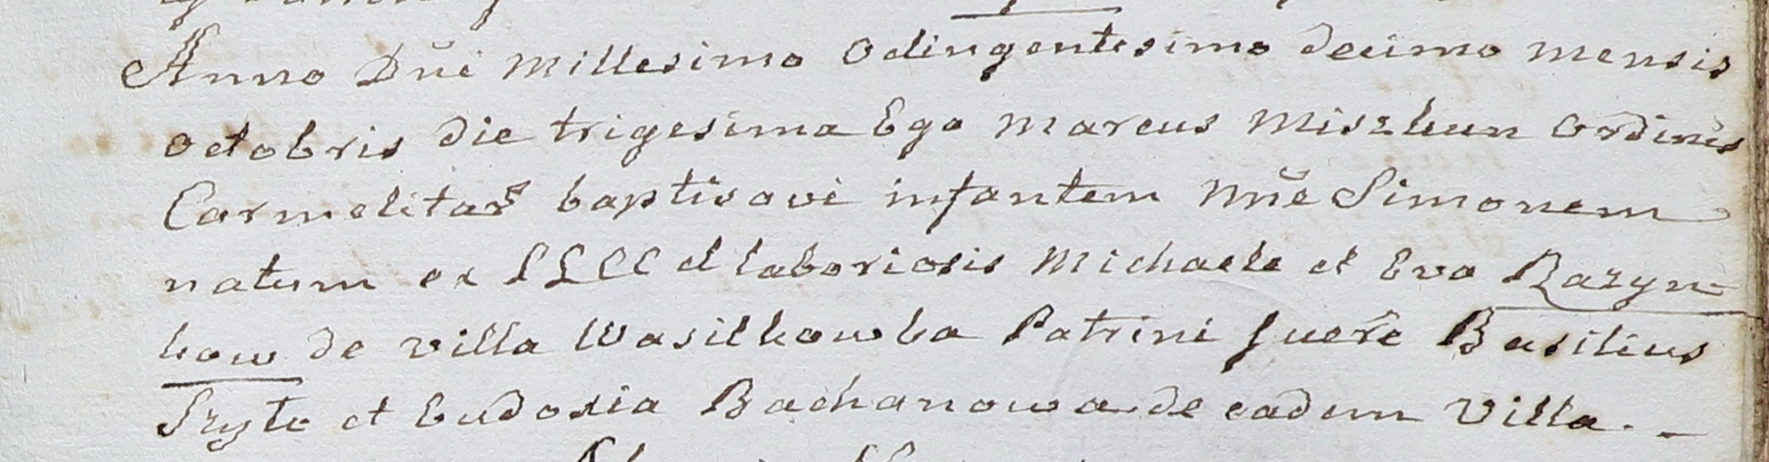 Anno Dnĩ Millesimo Octingentesimo decimo mensis
Octobris die trigesima Ego Marcus Miszkun Ordinis
Carmelitar baptisavi infantem nñe Simonem
natum ex LLCC et laboriosis Michaele et Eva Razyn-
kow de villa Wasilkowka Patrini fuere Basilius
Szyto et Eudoxia Bachanowa de eadem Villa. -